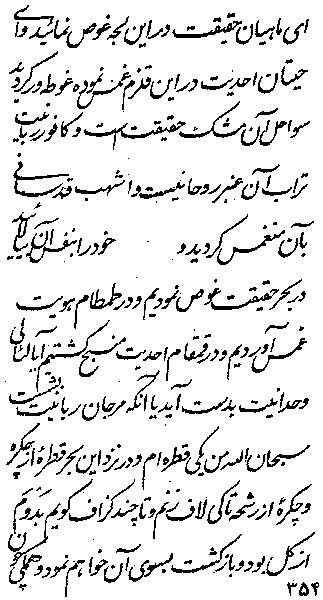 ای ماهیان حقیقت در این لجه غوص نمائید و ای
حیتان احدیت در این قلزم غمس نموده غوطه ور گردید
سواحل آن مشک حقیقت است و کافور ربا
تراب آن عنبر روحانیست و اشهب قدسانی
بآن منغمس گردید و خود را بنفس آن
در بحر حقیقت غوص نمودیم و در طمطام هویت
غمس آوردیم و در قمقام احدیت منسبح گشتیم آیا لئالی
وحدانیت بدست آید یا آنکه مرجان ربانیت
سبحان الله من یکی قطره ام و در نزد این بحر قطره از چکره
و چکرهٔ از رشحه تا کی لاف زنم و تا چند گزاف گویم بدوم
از کل بود و بازگشت بسوی آن خواهم نمود و
۳۵۴